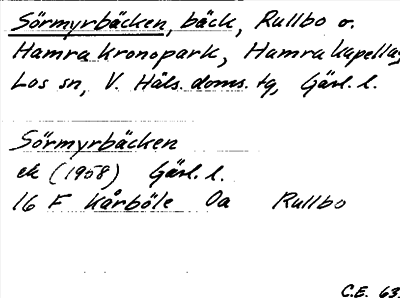 Sörmyrbäcken, bäck, Rullbo o.
Hamra kronopark, Hamra kapellag,
Los sn, V. Häls. doms. tg, Gävl. l.
Sörmyrbäcken
ek (1958) Gävl. l.
16 F Kårböle 0a Rullbo
C.E. 63